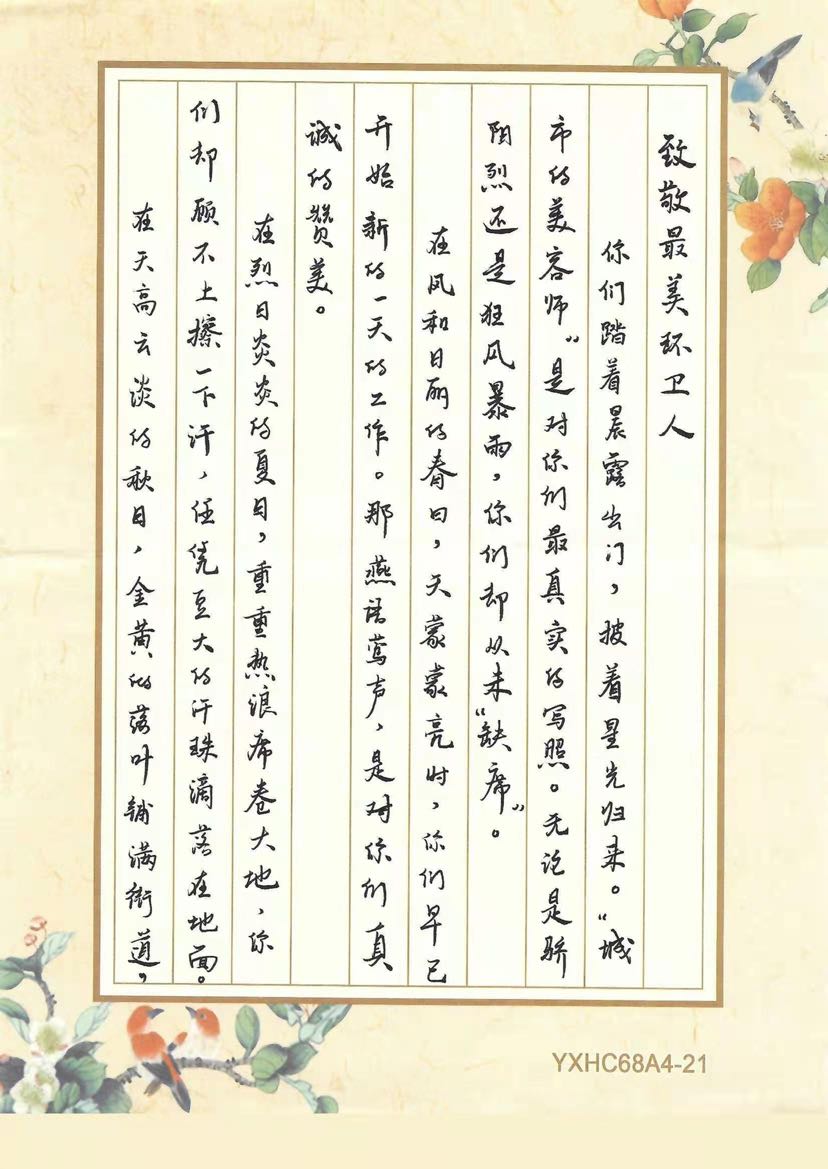 致敬最美环卫人
你们踏着晨露出门，披着星光归来。“城
市的美容师”是对你们最真实的写照。无论是骄
阳烈还是狂风暴雨，你们却从来“缺席”。
在风和日丽的春日，天蒙蒙亮时，你们早已
开始新的一天的工作。那燕语莺声，是对你们真
诚的赞美。
在烈日炎炎的夏日，重重热浪席卷大地，你
们却顾不上擦一下汗，任凭豆大的汗珠滴落在地面。
在天高云淡的秋日，金黄的落叶铺满街道，
YXHC68A4-21